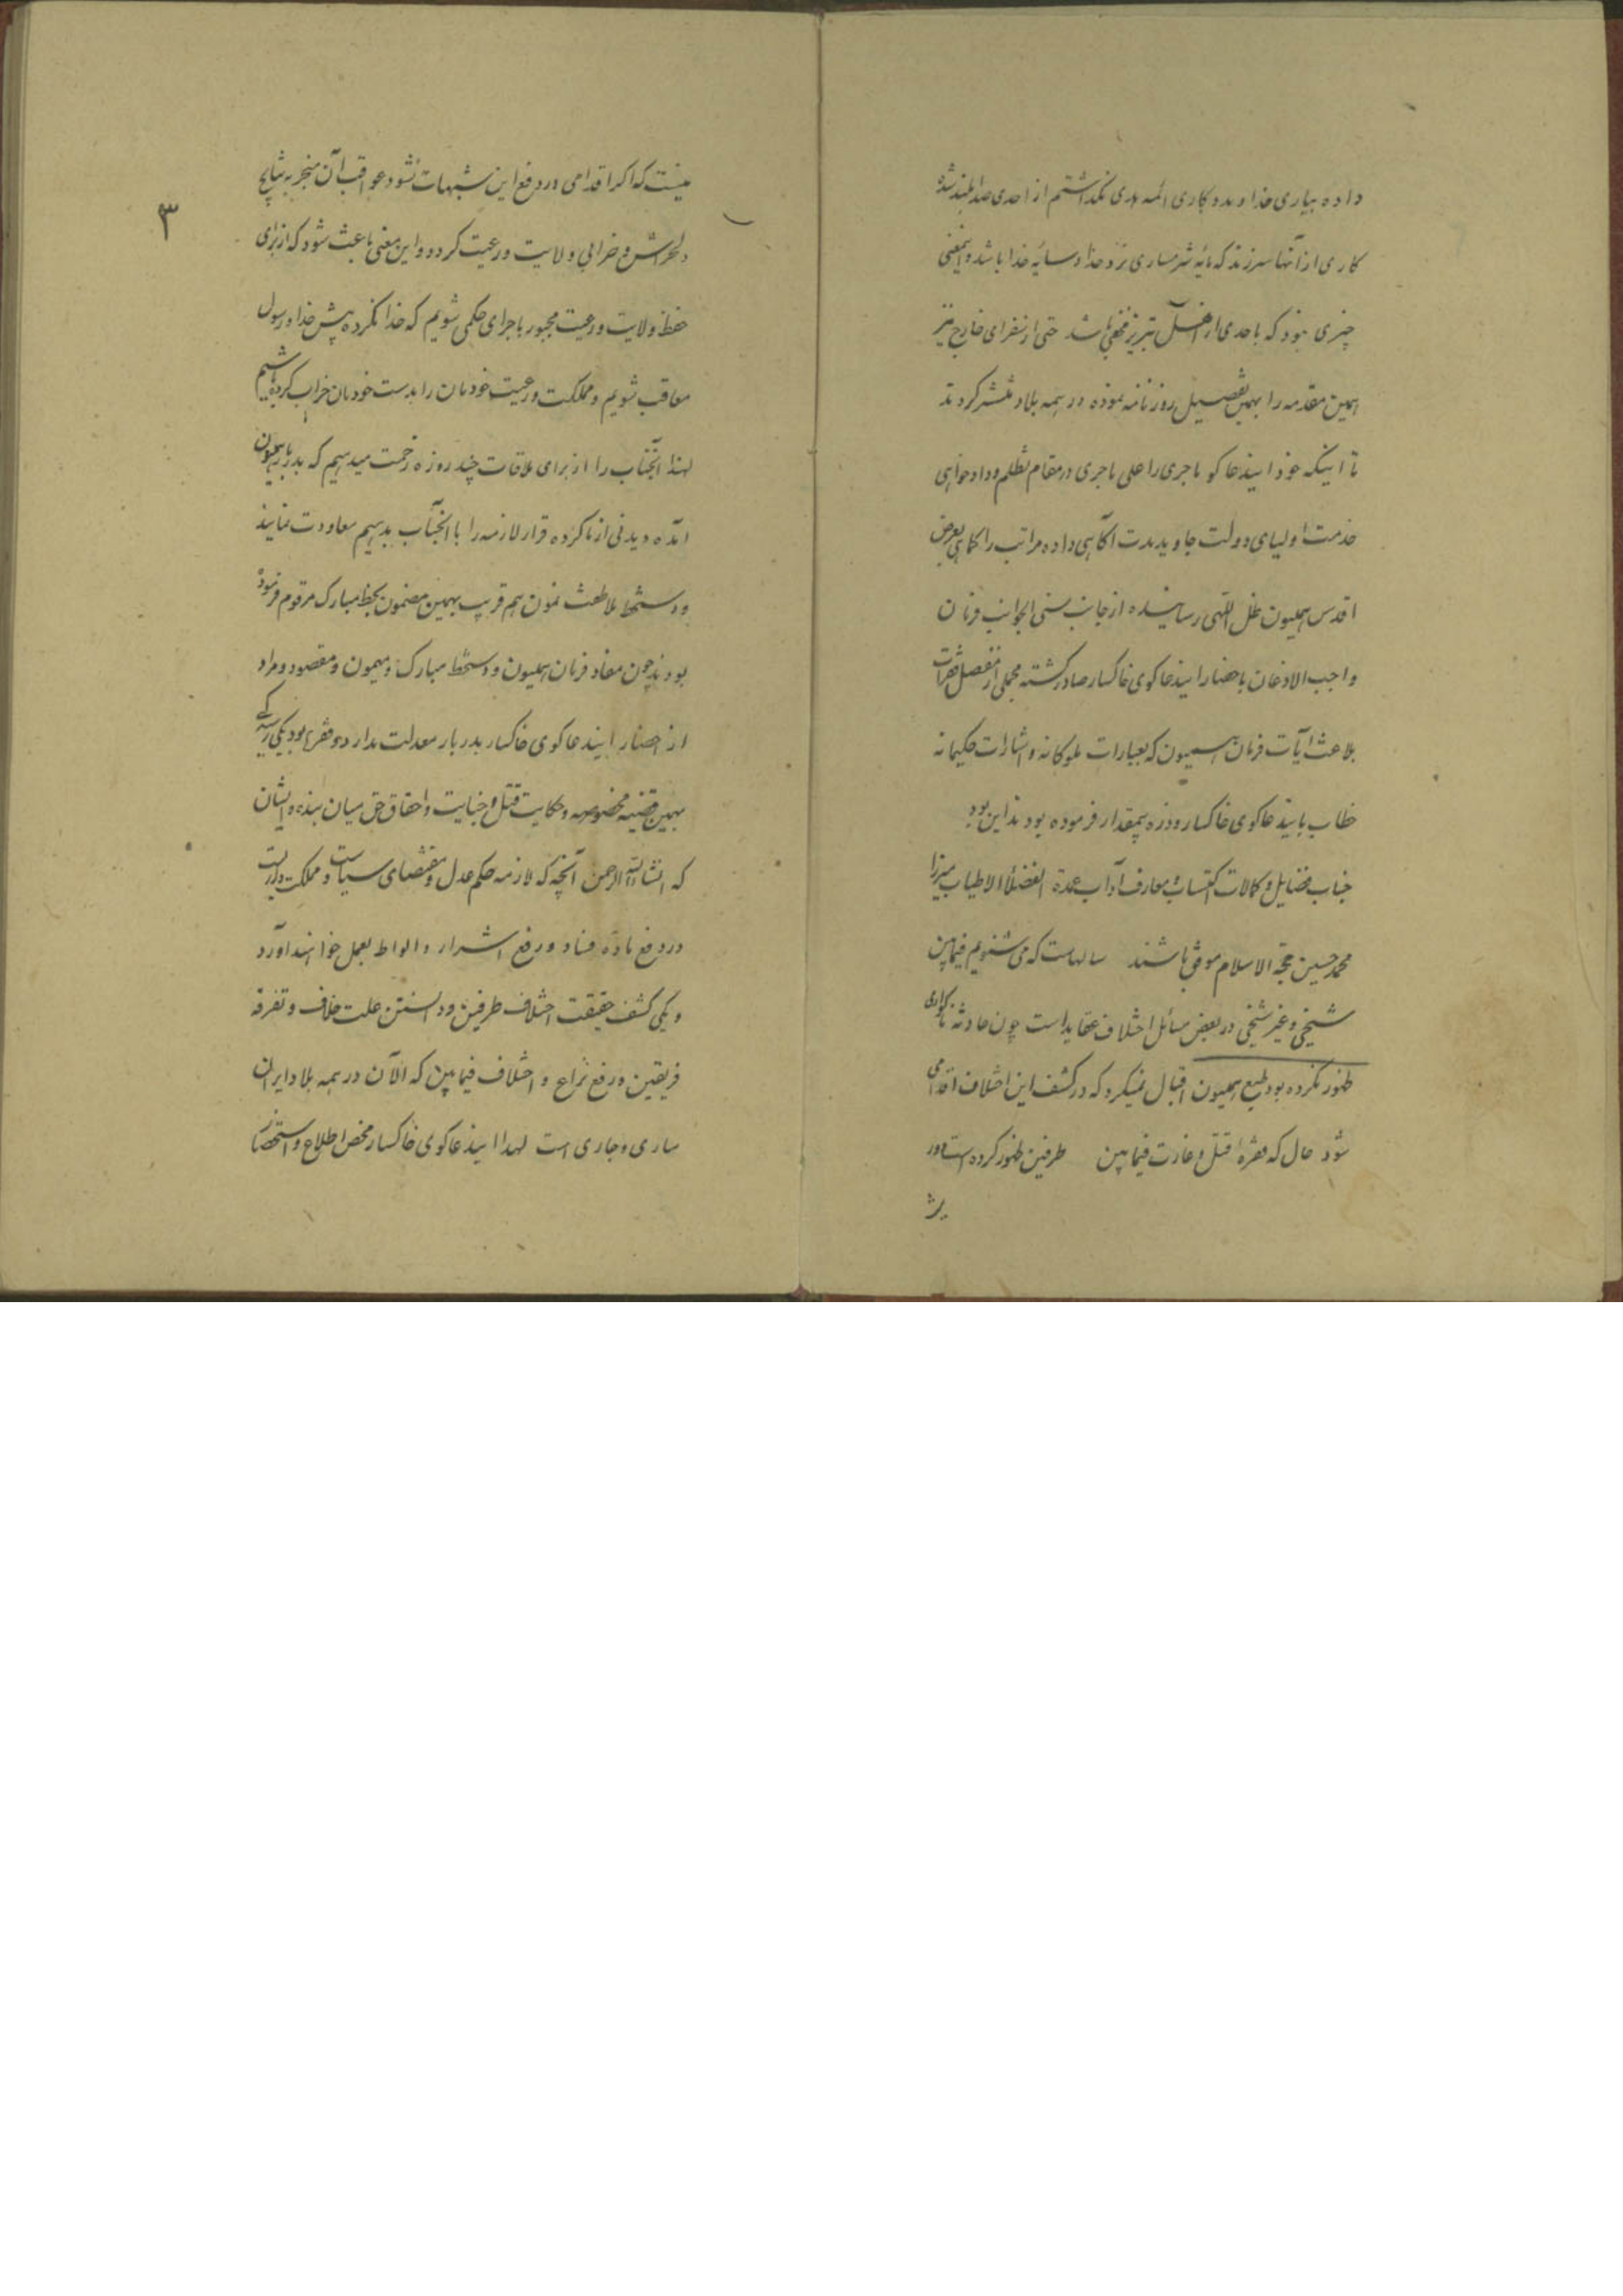 داده بیاری خدا و مددکاری ائمه هدی نگذاشتم از احدی صدا بلند شده
کاری از آنها سرزند که مایه شرمساری نزد خدا و سایه خدا باشد و اینمعنی
چیزی نبود که باحدی از اهل تبریز مخفی باشد حتی از سفرای خارج نیز
همین مقدمه را بهمین تفصیل روزنامه نموده در همه بلاد منتشر کردند
تا اینکه خود ایندعاکو ماجری را علی ماجری در مقام تظلم و دادخواهی
خدمت اولیای دولت جاوید مدت آکاهی داده مراتب را کماهی بعرض
اقدس همیون ظل اللهی رسانیده از جانب سنی الجوانب فرمان
واجب الاذعان باحضار ایندعاکوی خاکسار صادر کشته مجملی از مفصل فقرات
بلاغت آیات فرمان همیون که بعبارات ملوکانه و اشارات حکیمانه
خطاب بایندعاکوی خاکسار و ذره بیمقدار فرموده بودند این بود
جناب فضایل و کمالات اکتساب معارف آداب عمدة الفضلاء الاطیاب میرزا
محمد حسین حجة الاسلام موفق باشند سالهاست که می شنویم فیمابین
شیخی و غیر شیخی در بعض مسائل اختلاف عقاید است چون حادثه ناکواری
ظهور نکرده بود طبع همیون اقبال نمیکرد که در کشف این اختلاف اقدامی
شود حال که فقره قتل و غارت فیمابین طرفین ظهور کرده است و در
۳
نیست که اکر اقدامی در رفع این شبهات نشود عواقب آن منجر به نتایج
دلخراش و خرابی ولایت و رعیت کردد و این معنی باعث شود که از برای
حفظ ولایت و رعیت مجبور باجرای حکمی شویم که خدا نکرده پیش خدا و رسول
معاقب شویم و مملکت و رعیت خودمان را بدست خودمان خراب کرده باشیم
لهذا آنجناب را از برای ملاقات چند روزه زحمت میدهیم که بدربار همیون
آمده دیدنی از ما کرده قرار لازمه را با آنجناب بدهیم معاودت نمایند
و دستخط ملاطفت نمون هم قریب بهمین مضمون بخط مبارک مرقوم فرموده
بودند چون مفاد فرمان همیون و دستخط مبارک و میمون و مقصود و مراد
از احضار ایندعاکوی خاکسار بدربار معدلت مدار دو فقره بود یکی رسیدکی
بهمین قضیه مخصوصه و حکایت قتل و جنایت و احقاق حق میان بنده و ایشان
که انشاءالله الرحمن آنچه که لازمه حکم عدل و مقتضای سیاست و مملکت داریست
در رفع ماده فساد و رفع اشرار و الواط بعمل خواهند آورد
و یکی کشف حقیقت اختلاف طرفین و دانستن علت خلاف و تفرقه
فریقین و رفع نزاع و اختلاف فیمابین که الآن در همه بلاد ایران
ساری و جاری است لهذا ایندعاکوی خاکسار محض اطلاع و استحضار